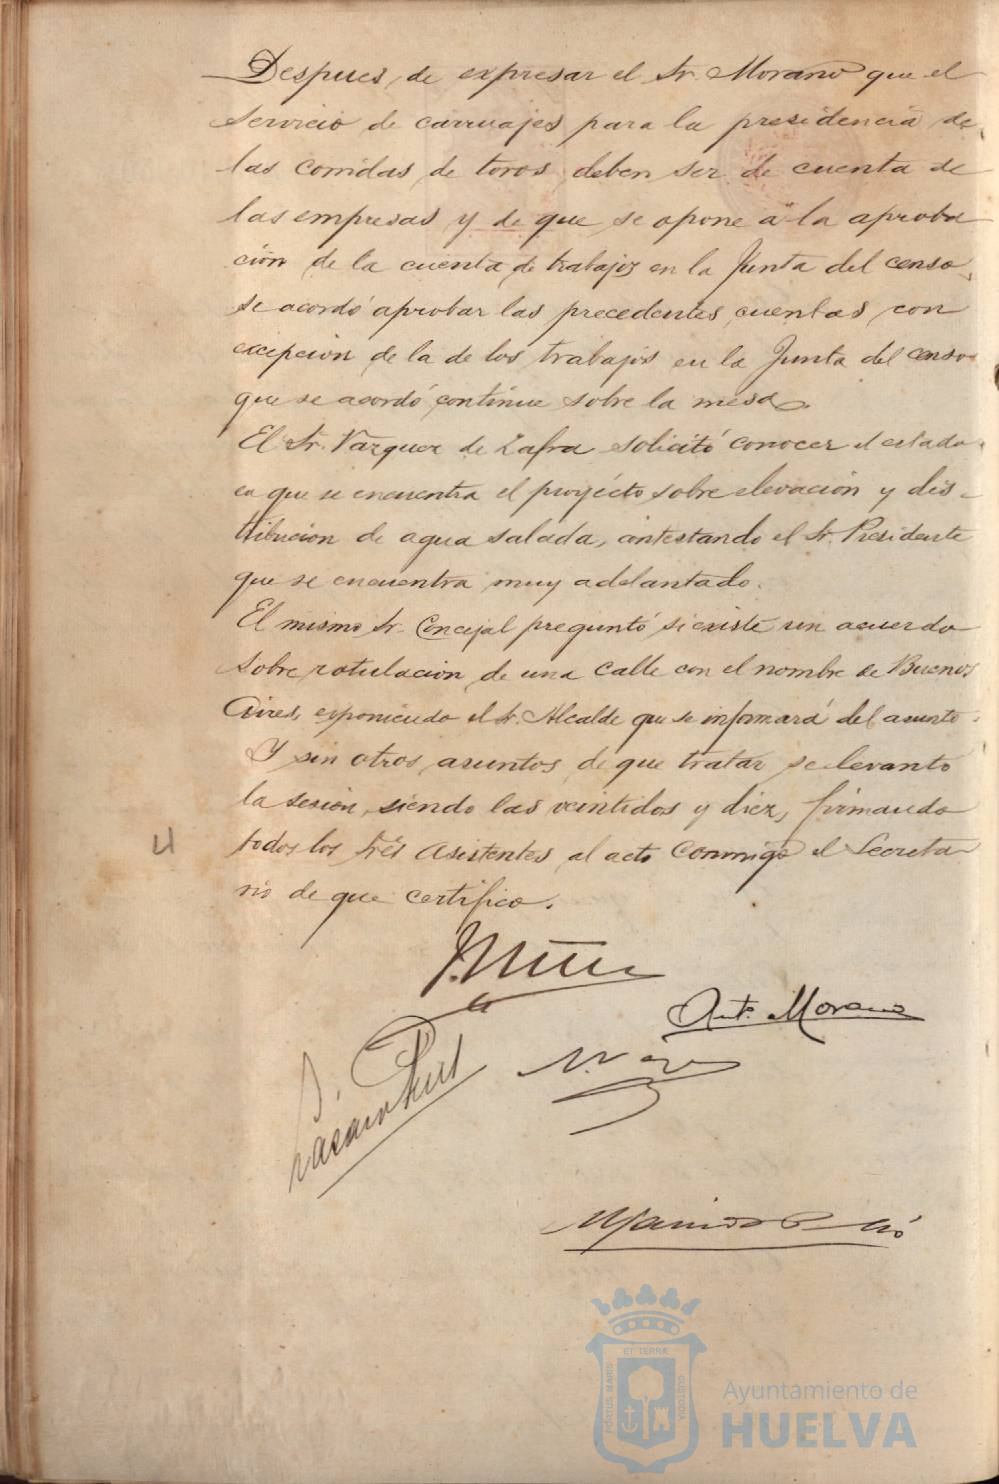 Despues, de expresar el Sr. Morano que el
servicio de carruajes para la presidencia de
las corridas de toros, deben ser de cuenta de
las empresas y de que, se opone á la aproba
ción de la cuenta de trabajos en la Junta del censo,
se acordó aprobar las precedentes cuentas, con
excepcion de la de los trabajos en la Junta del censo
que se acordó continue sobre la mesa.
El Sr. Vazquez de Zafra solicitó conocer el estado
en que se encuentra el proyécto sobre elevación y dis-
tribucion de agua salada, contestando el Sr. Presidente
que se encuentra muy adelantado.
El mismo Sr. Concejal preguntó si existe un acuerdo
sobre rotulacion de una calle con el nombre de Buenos
Aires, exponiendo el Sr. Alcalde que se informará del asunto.
Y sin otros asuntos de que tratar se levanto
la sesion, siendo las veintidos y diez, firmando
todos los Sres Asistentes al acto conmigo el Secreta
rio de que certifico.
Ant. Morano
ET TERRÆ
PORTUS MARIS
CUSTODIA
Ayuntamiento de
HUELVA